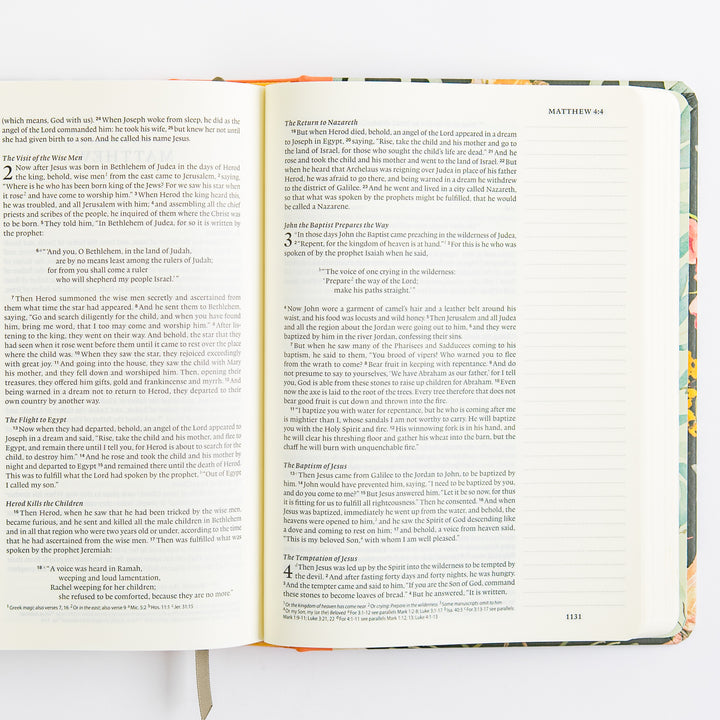 (which means, God with us). 24 When Joseph woke from sleep, he did as the
angel of the Lord commanded him: he took his wife, 25 but knew her not until
she had given birth to a son. And he called his name Jesus.
The Visit of the Wise Men
2 Now after Jesus was born in Bethlehem of Judea in the days of Herod
the king, behold, wise men from the east came to Jerusalem, 2 saying,
"Where is he who has been born king of the Jews? For we saw his star when
it rose and have come to worship him." 3 When Herod the king heard this,
he was troubled, and all Jerusalem with him; 4 and assembling all the chief
priests and scribes of the people, he inquired of them where the Christ was
to be born. 5 They told him, "In Bethlehem of Judea, for so it is written by
the prophet:
6 "'And you, O Bethlehem, in the land of Judah,
are by no means least among the rulers of Judah;
for from you shall come a ruler
who will shepherd my people Israel.'"
7 Then Herod summoned the wise men secretly and ascertained from
them what time the star had appeared. 8 And he sent them to Bethlehem,
saying, "Go and search diligently for the child, and when you have found
him, bring me word, that I too may come and worship him." 9 After lis-
tening to the king, they went on their way. And behold, the star that they
had seen when it rose went before them until it came to rest over the place
where the child was. 10 When they saw the star, they rejoiced exceedingly
with great joy. 11 And going into the house, they saw the child with Mary
his mother, and they fell down and worshiped him. Then, opening their
treasures, they offered him gifts, gold and frankincense and myrrh. 12 And
being warned in a dream not to return to Herod, they departed to their
own country by another way.
The Flight to Egypt
13 Now when they had departed, behold, an angel of the Lord appeared to
Joseph in a dream and said, "Rise, take the child and his mother, and flee to
Egypt, and remain there until I tell you, for Herod is about to search for the
child, to destroy him." 14 And he rose and took the child and his mother by
night and departed to Egypt 15 and remained there until the death of Herod.
This was to fulfill what the Lord had spoken by the prophet, "Out of Egypt
I called my son."
Herod Kills the Children
16 Then Herod, when he saw that he had been tricked by the wise men,
became furious, and he sent and killed all the male children in Bethlehem
and in all that region who were two years old or under, according to the time
that he had ascertained from the wise men. 17 Then was fulfilled what was
spoken by the prophet Jeremiah:
18 "A voice was heard in Ramah,
weeping and loud lamentation,
Rachel weeping for her children;
she refused to be comforted, because they are no more."
1 Greek magi; also verses 7, 16 2 Or in the east; also verse 9 Mic. 5:2 Hos. 11:1 Jer. 31:15
MATTHEW 4:4
The Return to Nazareth
19 But when Herod died, behold, an angel of the Lord appeared in a dream
to Joseph in Egypt, 20 saying, "Rise, take the child and his mother and go to
the land of Israel, for those who sought the child's life are dead." 21 And he
rose and took the child and his mother and went to the land of Israel. 22 But
when he heard that Archelaus was reigning over Judea in place of his father
Herod, he was afraid to go there, and being warned in a dream he withdrew
to the district of Galilee. 23 And he went and lived in a city called Nazareth,
so that what was spoken by the prophets might be fulfilled, that he would
be called a Nazarene.
John the Baptist Prepares the Way
3 In those days John the Baptist came preaching in the wilderness of Judea,
2 "Repent, for the kingdom of heaven is at hand." 3 For this is he who was
spoken of by the prophet Isaiah when he said,
"The voice of one crying in the wilderness:
'Prepare the way of the Lord;
make his paths straight.'"
4 Now John wore a garment of camel's hair and a leather belt around his
waist, and his food was locusts and wild honey. 5 Then Jerusalem and all Judea
and all the region about the Jordan were going out to him, 6 and they were
baptized by him in the river Jordan, confessing their sins.
7 But when he saw many of the Pharisees and Sadducees coming to his
baptism, he said to them, "You brood of vipers! Who warned you to flee
from the wrath to come? 8 Bear fruit in keeping with repentance. 9 And do
not presume to say to yourselves, 'We have Abraham as our father,' for I tell
you, God is able from these stones to raise up children for Abraham. 10 Even
now the axe is laid to the root of the trees. Every tree therefore that does not
bear good fruit is cut down and thrown into the fire.
11 "I baptize you with water for repentance, but he who is coming after me
is mightier than I, whose sandals I am not worthy to carry. He will baptize
you with the Holy Spirit and fire. 12 His winnowing fork is in his hand, and
he will clear his threshing floor and gather his wheat into the barn, but the
chaff he will burn with unquenchable fire."
The Baptism of Jesus
13 Then Jesus came from Galilee to the Jordan to John, to be baptized by
him. 14 John would have prevented him, saying, "I need to be baptized by you,
and do you come to me?" 15 But Jesus answered him, "Let it be so now, for thus
it is fitting for us to fulfill all righteousness." Then he consented. 16 And when
Jesus was baptized, immediately he went up from the water, and behold, the
heavens were opened to him, and he saw the Spirit of God descending like
a dove and coming to rest on him; 17 and behold, a voice from heaven said,
"This is my beloved Son, with whom I am well pleased."
The Temptation of Jesus
4 Then Jesus was led up by the Spirit into the wilderness to be tempted by
the devil. 2 And after fasting forty days and forty nights, he was hungry.
3 And the tempter came and said to him, "If you are the Son of God, command
these stones to become loaves of bread." 4 But he answered, "It is written,
Or the kingdom of heaven has come near Or crying: Prepare in the wilderness Some manuscripts omit to him
Or my Son, my (or the) Beloved For 3:1-12 see parallels Mark 1:2-8; Luke 3:1-17 Isa. 40:3 For 3:13-17 see parallels
Mark 1:9-11; Luke 3:21, 22 For 4:1-11 see parallels Mark 1:12, 13; Luke 4:1-13
1131